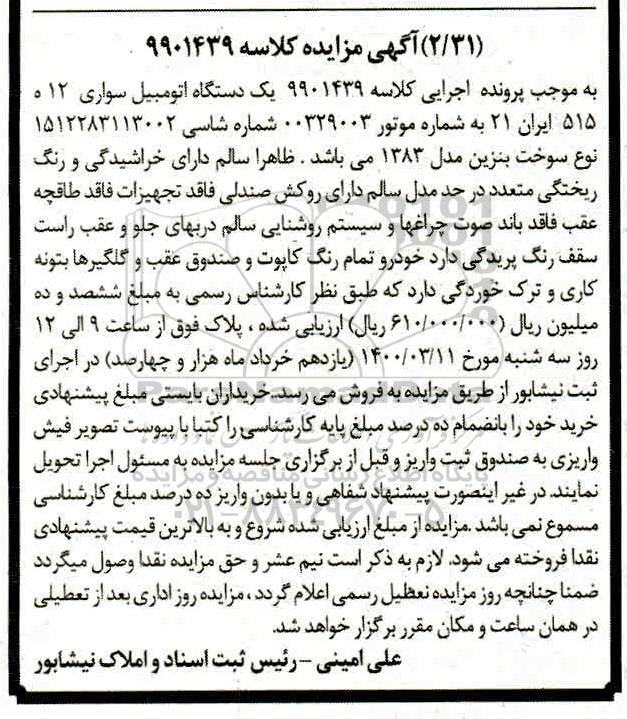 (۲/۳۱) آگهی مزایده کلاسه ۹۹۰۱۴۳۹
به موجب پرونده اجرایی کلاسه ۹۹۰۱۴۳۹ یک دستگاه اتومبیل سواری ۱۲ ه
۵۱۵ ایران ۲۱ به شماره موتور ۰۰۳۲۹۰۰۳ شماره شاسی ۱۵۱۲۲۸۳۱۱۳۰۰۲
نوع سوخت بنزین مدل ۱۳۸۳ می باشد . ظاهرا سالم دارای خراشیدگی و رنگ
ریختگی متعدد در حد مدل سالم دارای روکش صندلی فاقد تجهیزات فاقد طاقچه
عقب فاقد باند صوت چراغها و سیستم روشنایی سالم دربهای جلو و عقب راست
سقف رنگ پریدگی دارد خودرو تمام رنگ کاپوت و صندوق عقب و گلگیرها بتونه
کاری و ترک خوردگی دارد که طبق نظر کارشناس رسمی به مبلغ ششصد و ده
میلیون ریال (۶۱۰/۰۰۰/۰۰۰ ریال) ارزیابی شده ، پلاک فوق از ساعت ۹ الی ۱۲
روز سه شنبه مورخ ۱۴۰۰/۰۳/۱۱ (یازدهم خرداد ماه هزار و چهارصد) در اجرای
ثبت نیشابور از طریق مزایده به فروش می رسد.خریداران بایستی مبلغ پیشنهادی
خرید خود را بانضمام ده درصد مبلغ پایه کارشناسی را کتبا با پیوست تصویر فیش
واریزی به صندوق ثبت واریز و قبل از برگزاری جلسه مزایده به مسئول اجرا تحویل
نمایند. در غیر اینصورت پیشنهاد شفاهی و یا بدون واریز ده درصد مبلغ کارشناسی
مسموع نمی باشد .مزایده از مبلغ ارزیابی شده شروع و به بالاترین قیمت پیشنهادی
نقدا فروخته می شود. لازم به ذکر است نیم عشر و حق مزایده نقدا وصول میگردد
ضمنا چنانچه روز مزایده تعطیل رسمی اعلام گردد ، مزایده روز اداری بعد از تعطیلی
در همان ساعت و مکان مقرر برگزار خواهد شد.
علی امینی – رئیس ثبت اسناد و املاک نیشابور
پایگاه اطلاع رسانی مناقصه و مزایده
۰۲۱-۸۸۳۴۹۶۷۰-۵